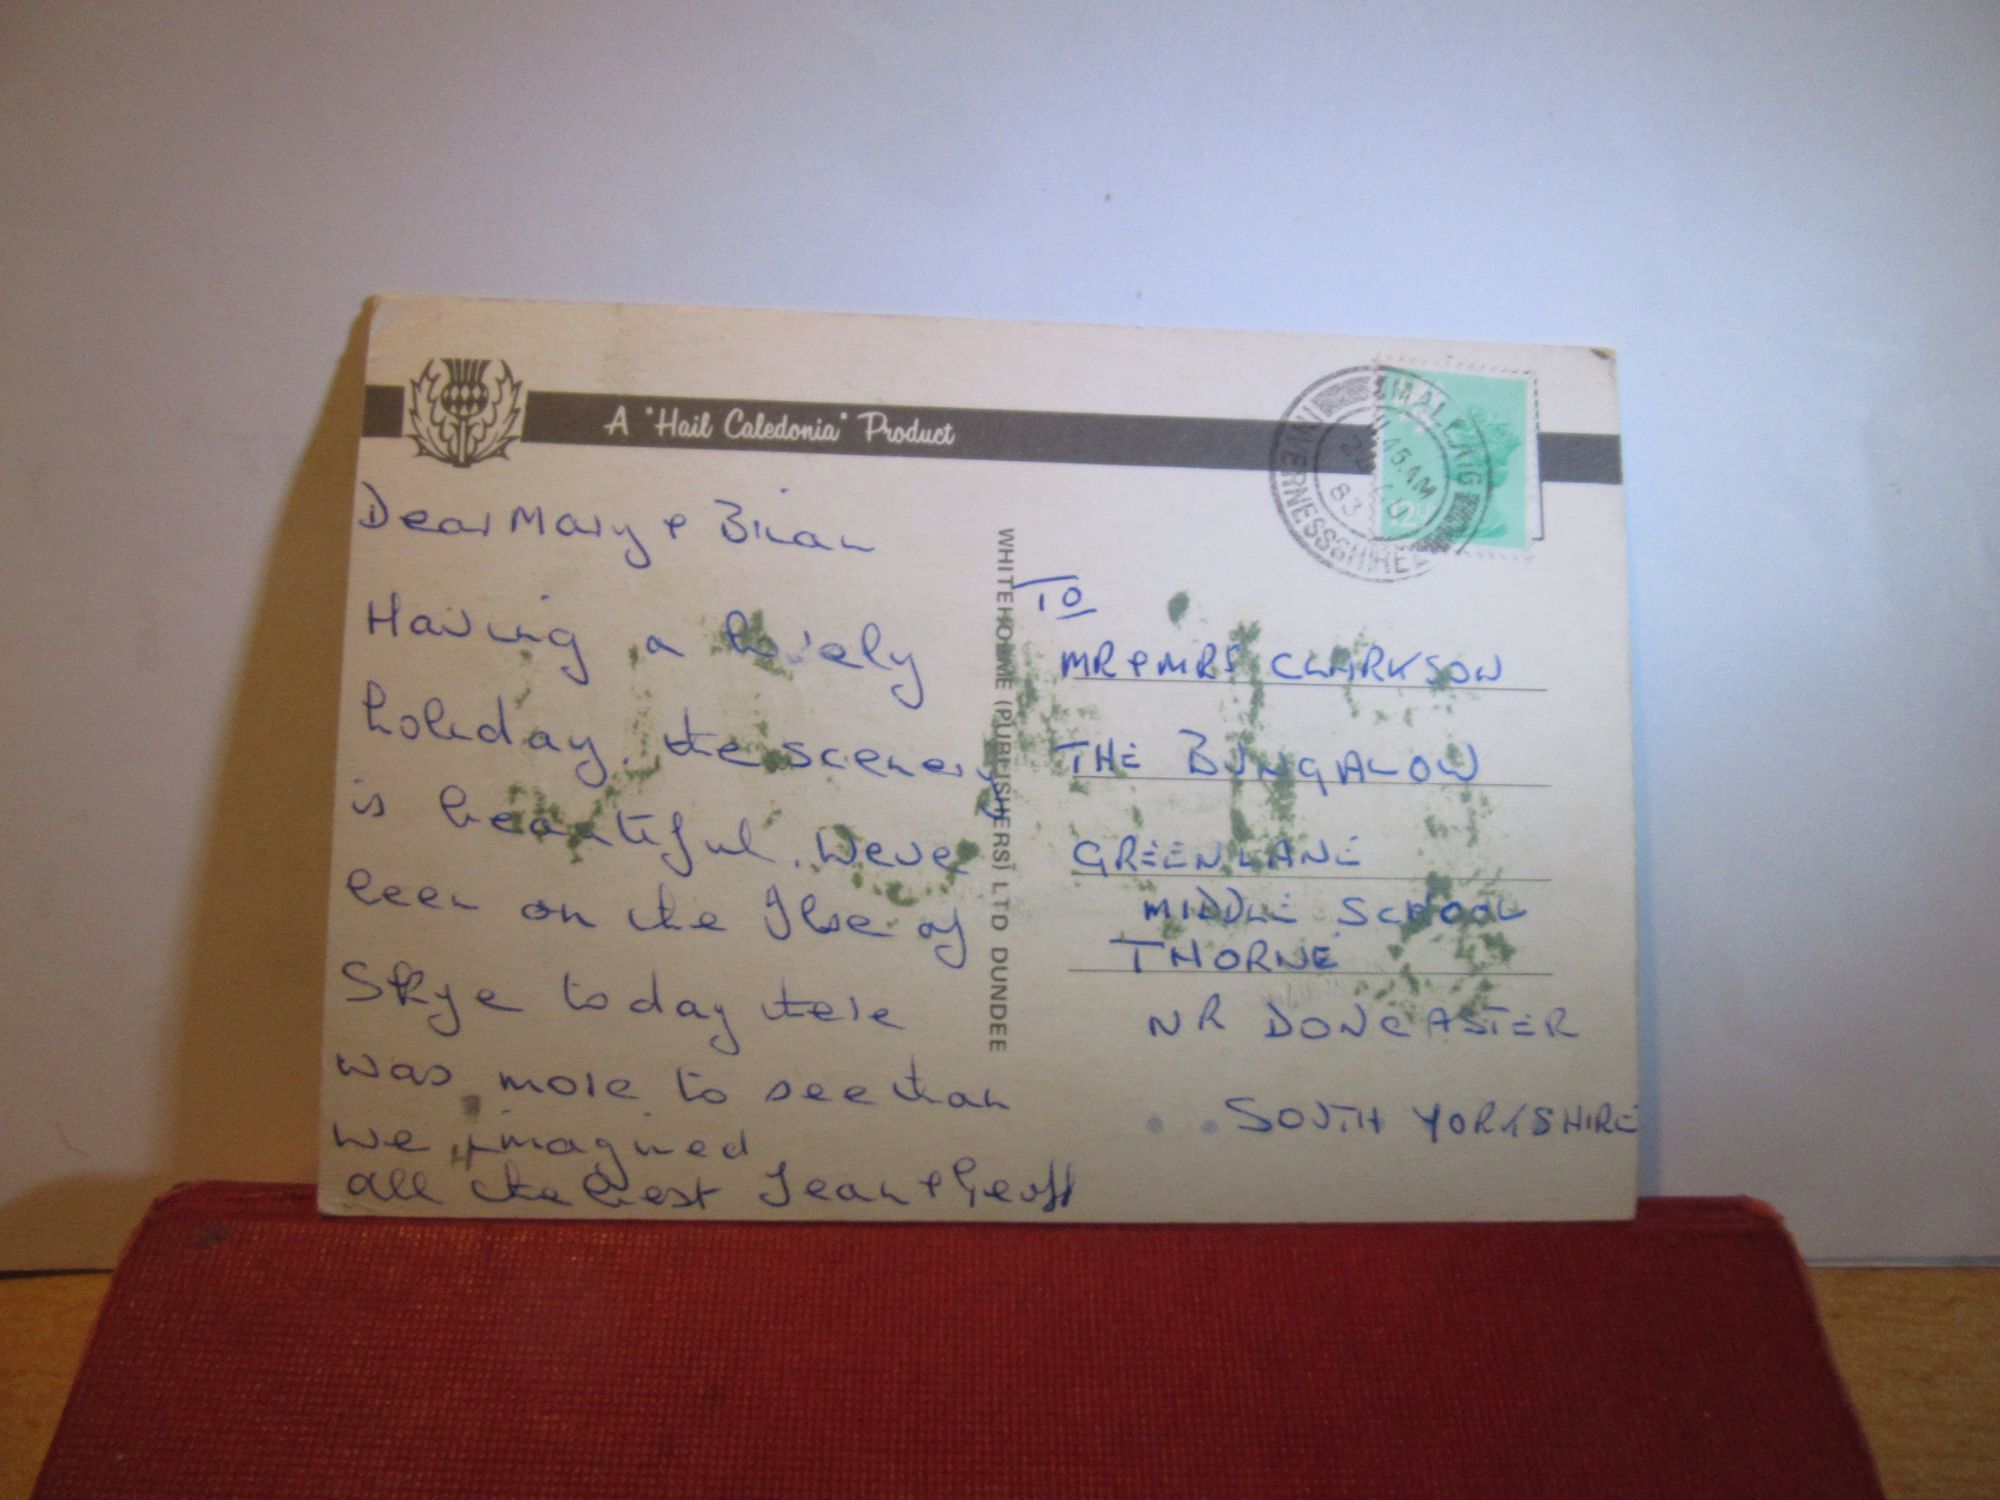 A "Hail Caledonia" Product
MALLAIG
INVERNESSSHIRE
45 AM
83
12
Dear Mary & Brian
Having a lovely
holiday, the scenery
is beautiful. Weve
been on the Isle of
Skye today there
was more to see than
we imagined
all the best Jean & Geoff
WHITEHOLME (PUBLISHERS) LTD DUNDEE
TO
MR & MRS CLARKSON
THE BUNGALOW
GREEN LANE
MIDDLE SCHOOL
THORNE
NR DONCASTER
SOUTH YORKSHIRE